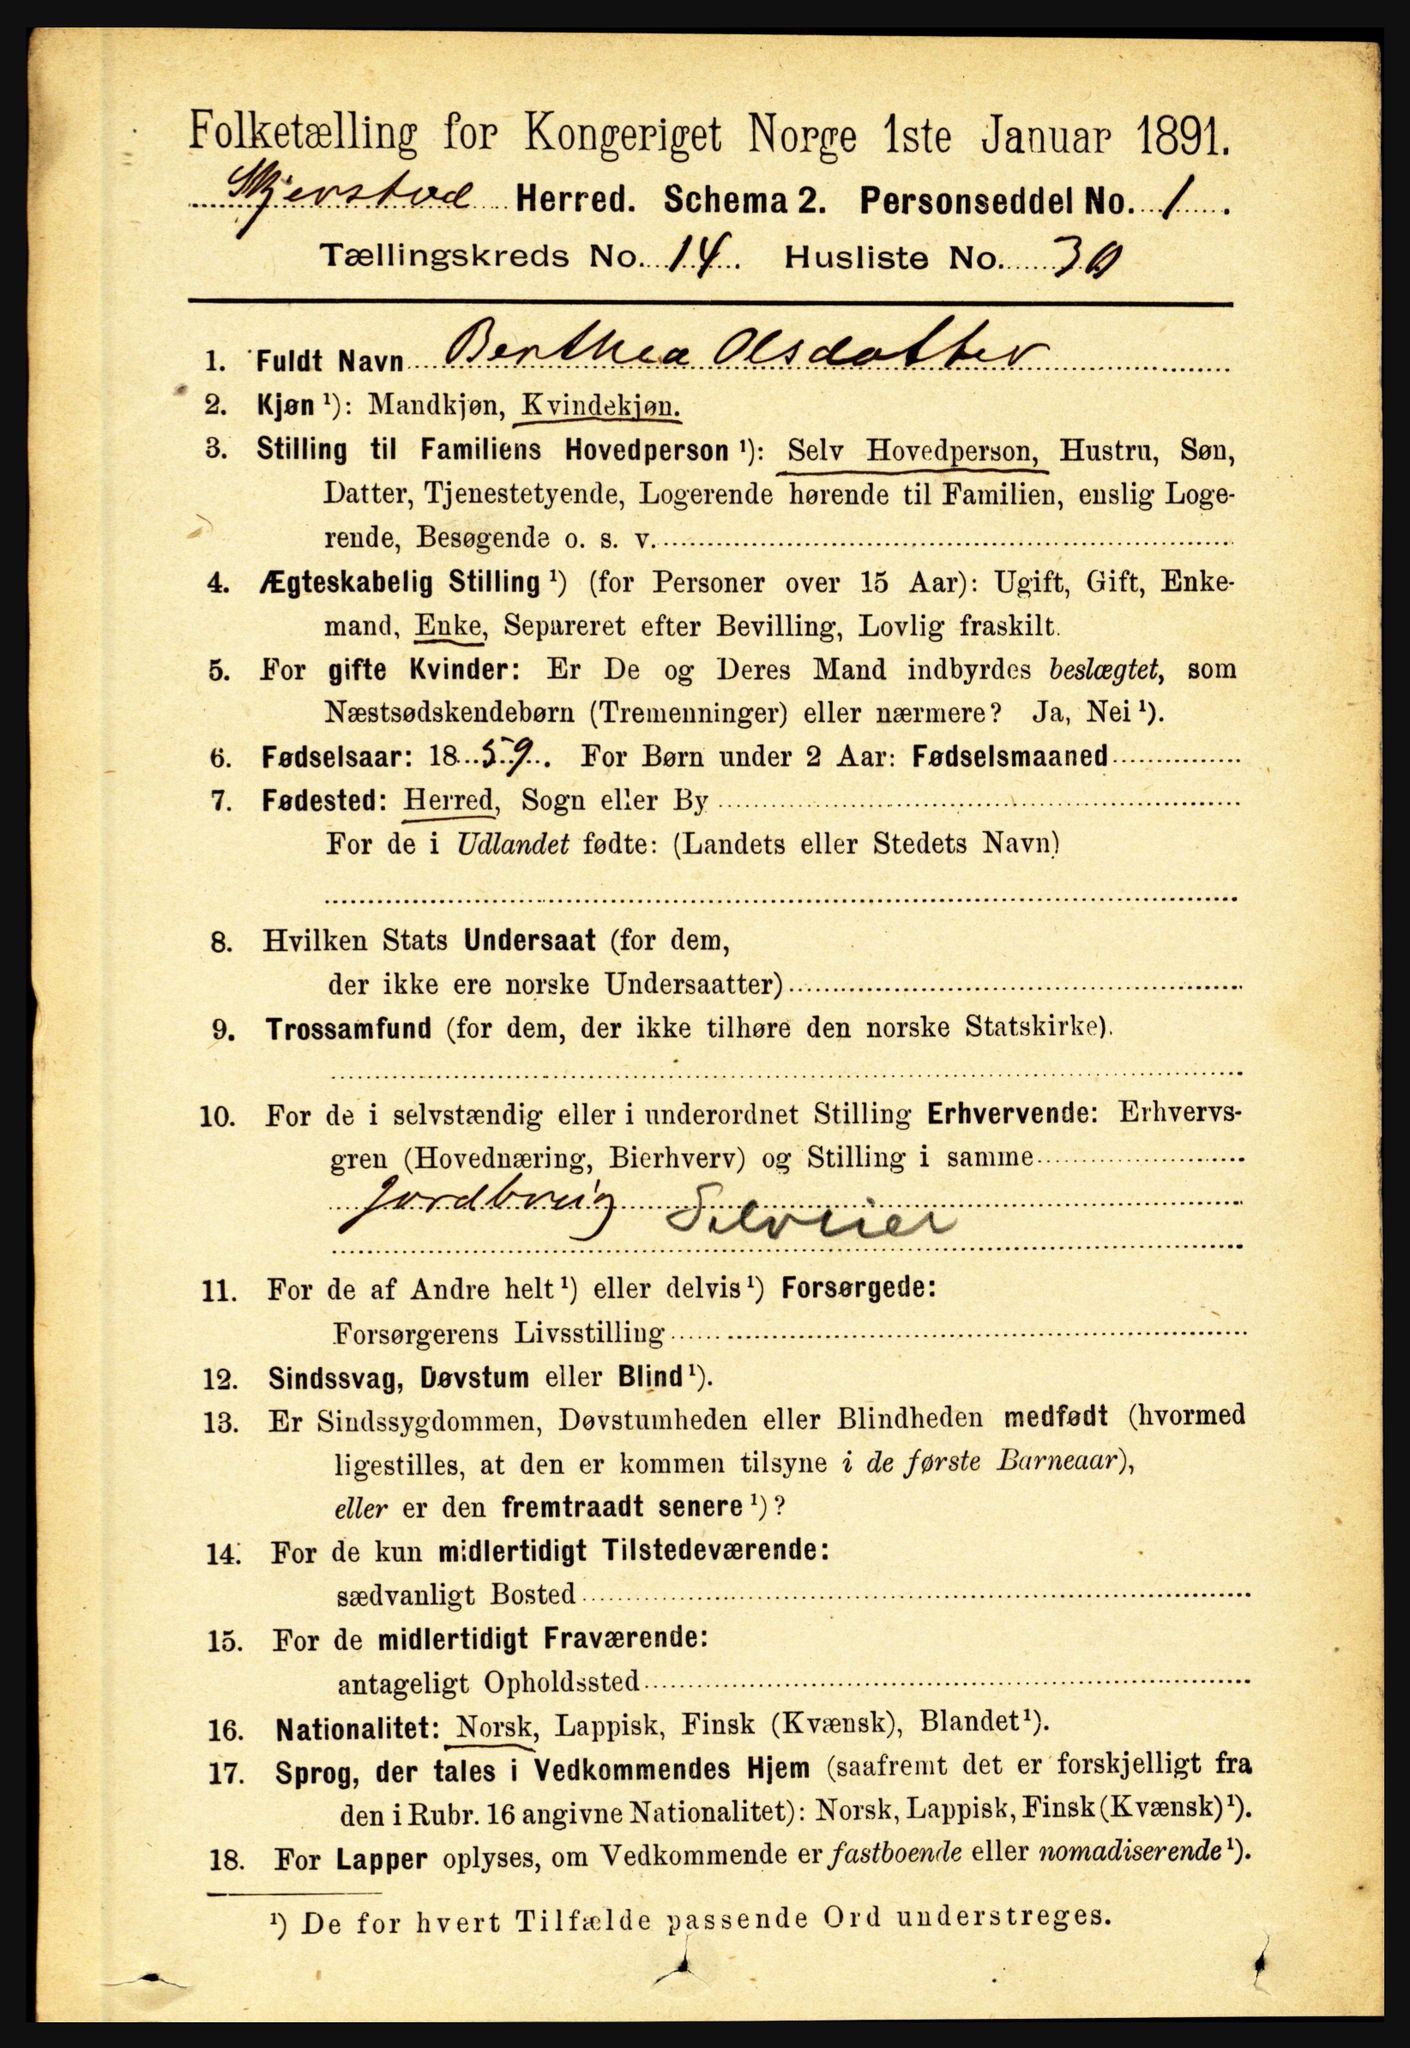 Folketælling for Kongeriget Norge 1ste Januar 1891.
Skjerstad Herred. Schema 2. Personseddel No. 1.
Tællingskreds No. 14. Husliste No. 30
1. Fuldt Navn Berthea Olsdatter
2. Kjøn ¹): Mandkjøn, Kvindekjøn.
3. Stilling til Familiens Hovedperson ¹): Selv Hovedperson, Hustru, Søn,
Datter, Tjenestetyende, Logerende hørende til Familien, enslig Loge-
rende, Besøgende o. s. v.
4. Ægteskabelig Stilling ¹) (for Personer over 15 Aar): Ugift, Gift, Enke-
mand, Enke, Separeret efter Bevilling, Lovlig fraskilt.
5. For gifte Kvinder: Er De og Deres Mand indbyrdes beslægtet, som
Næstsødskendebørn (Tremenninger) eller nærmere? Ja, Nei ¹).
6. Fødselsaar: 1859. For Børn under 2 Aar: Fødselsmaaned
7. Fødested: Herred, Sogn eller By
For de i Udlandet fødte: (Landets eller Stedets Navn)
8. Hvilken Stats Undersaat (for dem,
der ikke ere norske Undersaatter)
9. Trossamfund (for dem, der ikke tilhøre den norske Statskirke).
10. For de i selvstændig eller i underordnet Stilling Erhvervende: Erhvervs-
gren (Hovednæring, Bierhverv) og Stilling i samme
Jordbrug Selveier
11. For de af Andre helt ¹) eller delvis ¹) Forsørgede:
Forsørgerens Livsstilling
12. Sindssvag, Døvstum eller Blind ¹).
13. Er Sindssygdommen, Døvstumheden eller Blindheden medfødt (hvormed
ligestilles, at den er kommen tilsyne i de første Barneaar),
eller er den fremtraadt senere ¹)?
14. For de kun midlertidigt Tilstedeværende:
sædvanligt Bosted
15. For de midlertidigt Fraværende:
antageligt Opholdssted
16. Nationalitet: Norsk, Lappisk, Finsk (Kvænsk), Blandet ¹).
17. Sprog, der tales i Vedkommendes Hjem (saafremt det er forskjelligt fra
den i Rubr. 16 angivne Nationalitet): Norsk, Lappisk, Finsk (Kvænsk) ¹).
18. For Lapper oplyses, om Vedkommende er fastboende eller nomadiserende ¹).
¹) De for hvert Tilfælde passende Ord understreges.